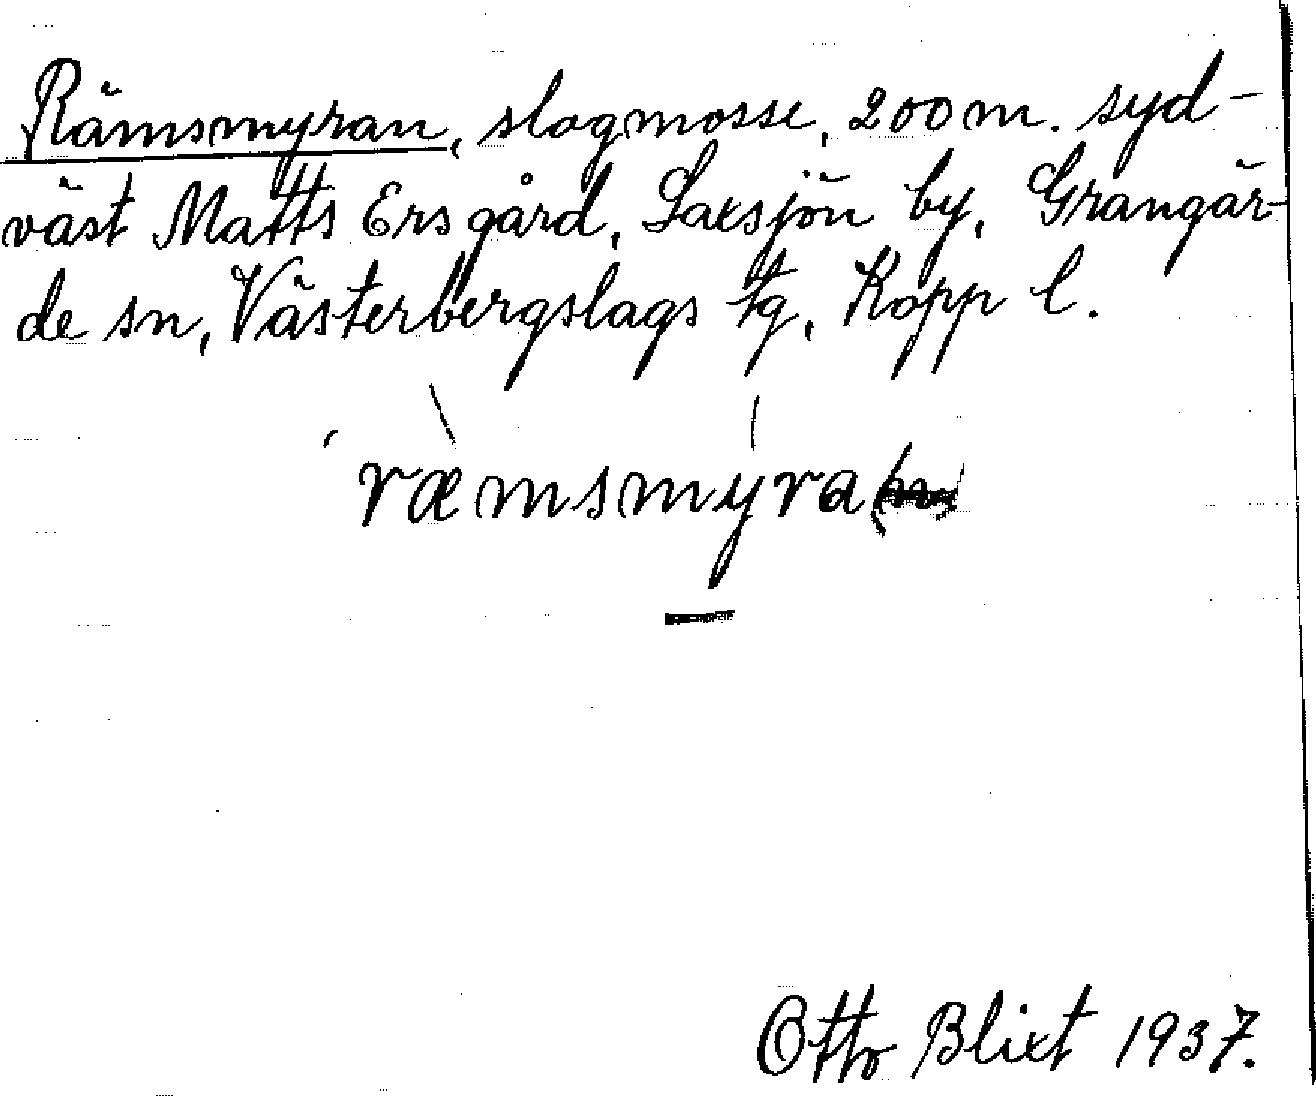 Rämsmyran, slogmosse, 200 m. syd-
väst Matts Ers gård, Laxsjön by, Grangär-
de sn, Västerbergslags tg, Kopp l.
ræmsmyra(n)
Otto Blixt 1937.